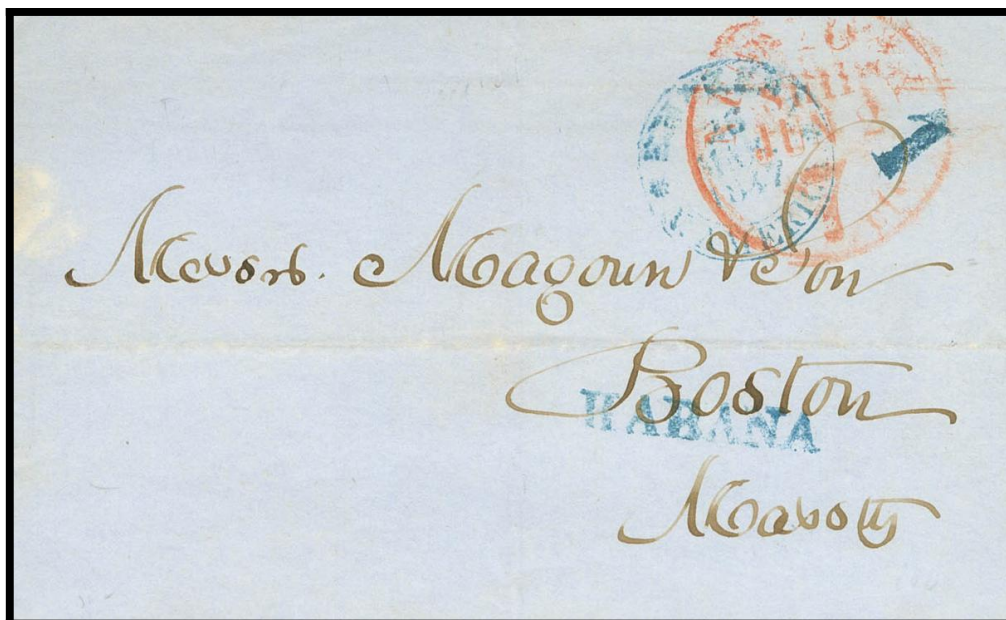 SHIP
7
1
Messrs. Magoun & Son
Boston
HABANA
Massts